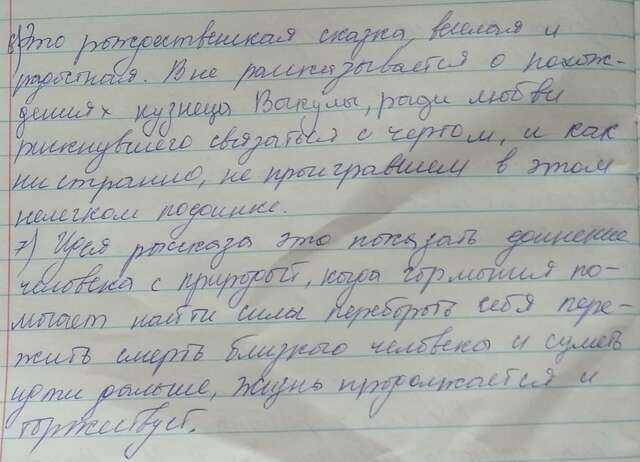 6) Это рождественская сказка, веселая и
радостная. В не рассказывается о похож-
дениях кузнеца Вакулы, ради любви
рискнувшего связаться с чертом, и как
ни странно, не проигравшем в этом
нелегком поединке.
7) Идея рассказа это показать единение
человека с природой, когда гормония по-
могает найти силы перебороть себя пере-
жить смерть близкого человека и суметь
идти дальше, жизнь продолжается и
торжествует.